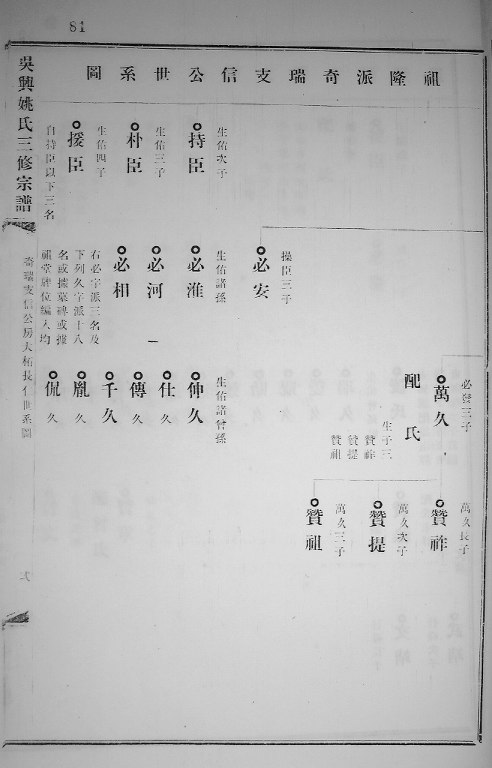 81
祖隆派奇瑞支信公世系圖
持臣
生佑次子
朴臣
生佑三子
援臣
生佑四子
自持臣以下三名
操臣三子
必安
生佑諸孫
必淮
必河
必相
右必字派三名及
下列久字派十八
名或據墓碑或據
祠堂牌位編入均
必發三子
萬久
配氏
生子三
贊祚
贊提
贊祖
生佑諸曾孫
伸久
仕久
傳久
千久
胤久
侃久
萬久長子
贊祚
萬久次子
贊提
萬久三子
贊祖
吳興姚氏三修宗譜
奇瑞支信公房大柘長仁世系圖